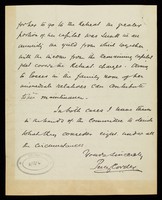 for her to go to the Retreat as greater
portion of her capital was sunk in an
annuity the yield from which together
with the income from the remaining capital
just covers the Retreat charge. Owing
to losses in the family none of her
immediate relatives can contribute
to her maintenance.
In both cases I leave them
in the hands of the Committee to decide
what they consider right under all
the circumstances
Yours sincerely
Percy Corder